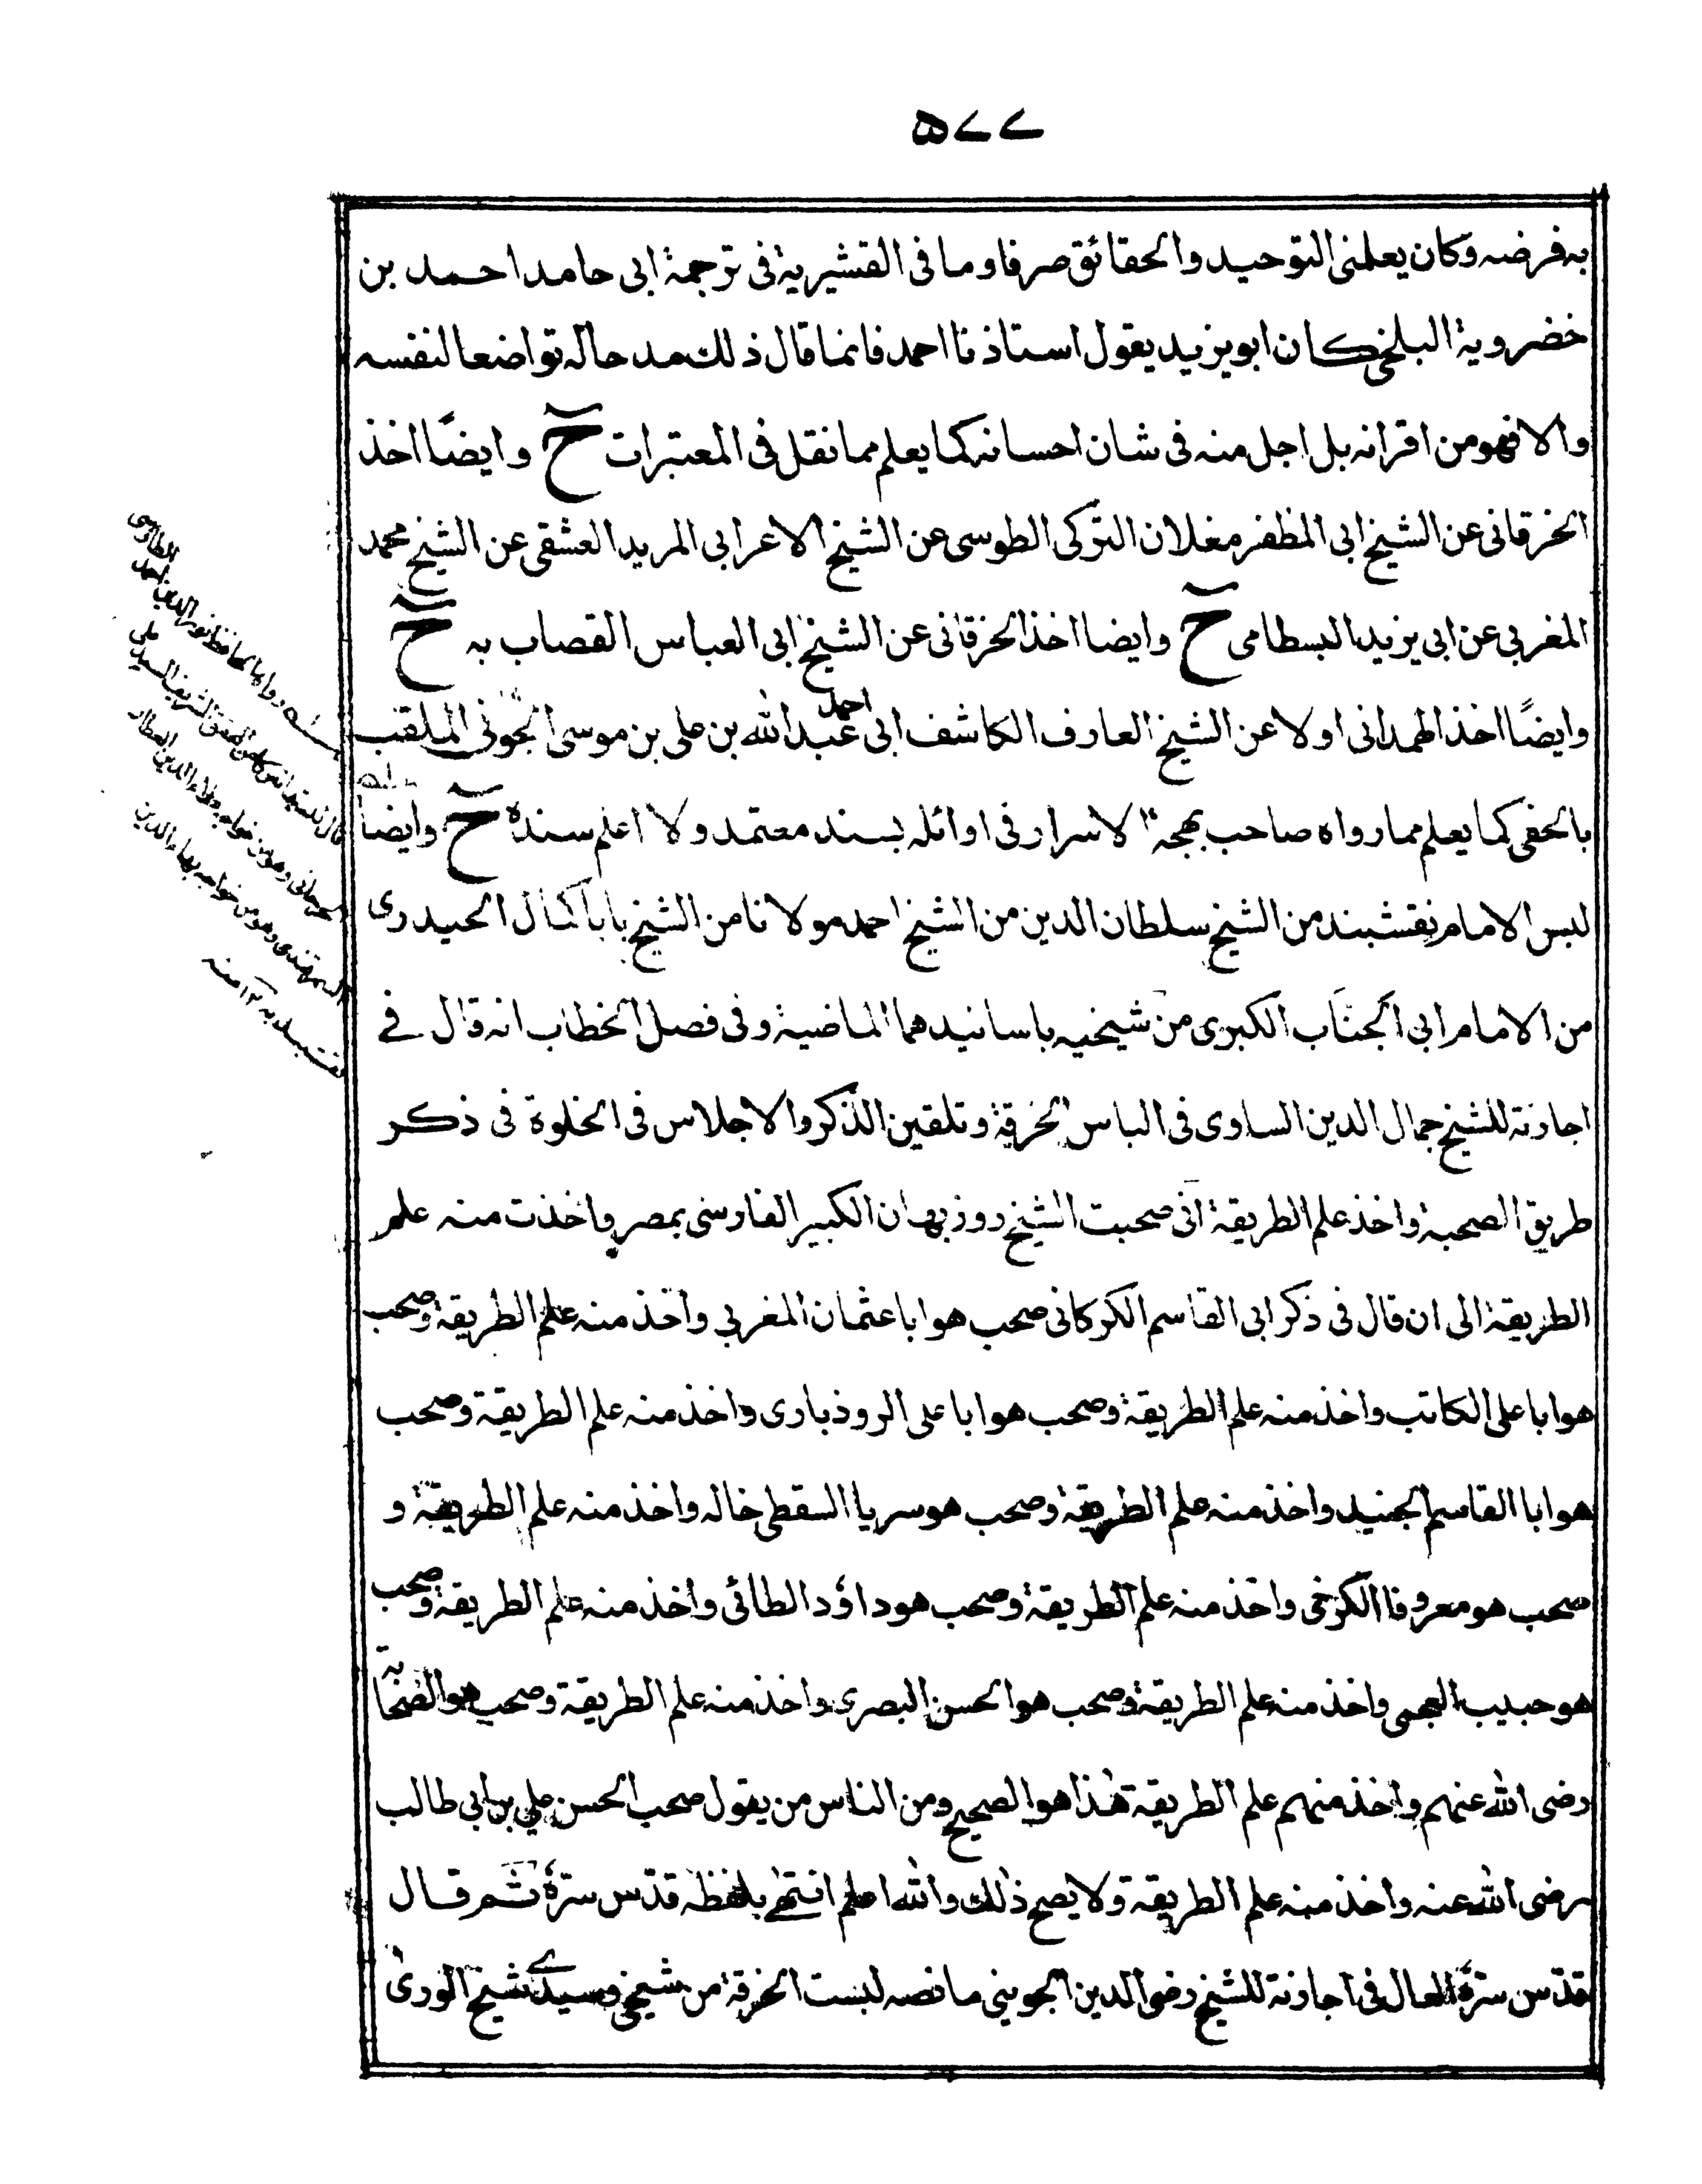 ۵۷۷
به فرضه وكان يعلمنى التوحيد والحقائق صرفا وما فى القشيرية فى ترجمة ابى حامد احمد بن
خضروية البلخى كان ابو يزيد يقول استاذنا احمد فانما قال ذلك مد حاله تواضعا لنفسه
والا فهو من اقرانه بل اجل منه فى شان احسانه كما يعلم مما نقل فى المعتبرات ح وايضًا اخذ
الخرقانى عن الشيخ ابى المظفر مغلان التركى الطوسى عن الشيخ الاعرابى المريد العشقى عن الشيخ محمد
المغربى عن ابى يزيد البسطامى ح وايضا اخذ الخرقانى عن الشيخ ابى العباس القصاب به ح
وايضًا اخذ الهمدانى اولا عن الشيخ العارف الكاشف ابى احمد عبد الله بن على بن موسى الجونى الملقب
بالحفى كما يعلم مما رواه صاحب بهجة الاسرار فى اوائله بسند معتمد ولا اعلم سنده ح وايضا
لبس الامام نقشبند من الشيخ سلطان الدين من الشيخ احمد مولانا من الشيخ بابا كمال الحيدرى
من الامام ابى الجناب الكبرى من شيخيه باسانيدهما الماضية وفى فصل الخطاب انه قال فے
اجازته للشيخ جمال الدين الساوى فى الباس الخرقة وتلقين الذكر والاجلاس فى الخلوة فى ذكر
طريق الصحبة واخذ علم الطريقة انى صحبت الشيخ روزبهان الكبير الفارسى بمصر واخذت منه علم
الطريقة الى ان قال فى ذكر ابى القاسم الكركانى صحب هو ابا عثمان المغربى واخذ منه علم الطريقة وصحب
هو ابا على الكاتب واخذ منه علم الطريقة وصحب هو ابا على الروذبارى واخذ منه علم الطريقة وصحب
هو ابا القاسم الجنيد واخذ منه علم الطريقة وصحب هو سريا السقطى خاله واخذ منه علم الطريقة و
صحب هو معروفا الكرخى واخذ منه علم الطريقة وصحب هو داوٗد الطائى واخذ منه علم الطريقة وصحب
هو حبيب العجمى واخذ منه علم الطريقة وصحب هو الحسن البصرى واخذ منه علم الطريقة وصحب هو الصحابة
رضى الله عنهم واخذ منهم علم الطريقة هٰذا هو الصحيح ومن الناس من يقول صحب الحسن على بن ابى طالب
رضى الله عنه واخذ منه علم الطريقة ولا يصح ذٰلك والله اعلم انتهٰے بلفظه قدّس سرّهٗ ثم قال
قدّس سرّهٗ العال فى اجازته للشيخ رضى الدين الجوينى ما نصه لبست الخرقة من شيخى وسيدے شيخ الورىٰ
الطاوسى
له رواها الحافظ نور الدين احمد
قال تلقيت الذكر من الشريف السيد على
الجرجانى وهو من خواجه علاء الدين العطار
وهو من خواجه بهاء الدين
نقشبند به ١٢ منه